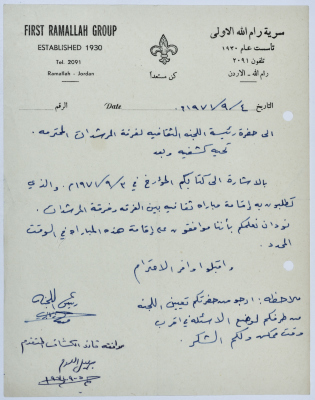 FIRST RAMALLAH GROUP
ESTABLISHED 1930
Tel. 2091
Ramallah - Jordan
سرية رام الله الاولى
تأسست عام ١٩٣٠
تلفون ٢٠٩١
رام الله - الاردن
كن مستعداً
التاريخ ١٩٧١/٩/٤ Date الرقم
الى حضرة رئيسة اللجنه الثقافيه لفرقة المرشدات المحترمه.
تحية كشفيه وبعد
بالاشارة الى كتابكم المؤرخ في ١٩٧١/٩/٣م. والذي
تطلبون به إقامة مباراه ثقافيه بين الفرقه وفرقة المرشدات.
نود ان نعلمكم بأننا موافقون على إقامة هذه المباراه في الوقت
المحدد.
واقبلوا وافر الاحترام
ملاحظه: ارجو من حضرتكم تعيين اللجنه
من طرفكم لوضع الاسئله في اقرب
وقت ممكن ولكم الشكر.
رئيس اللجنه
موافقه قائد الكشاف المتقدم